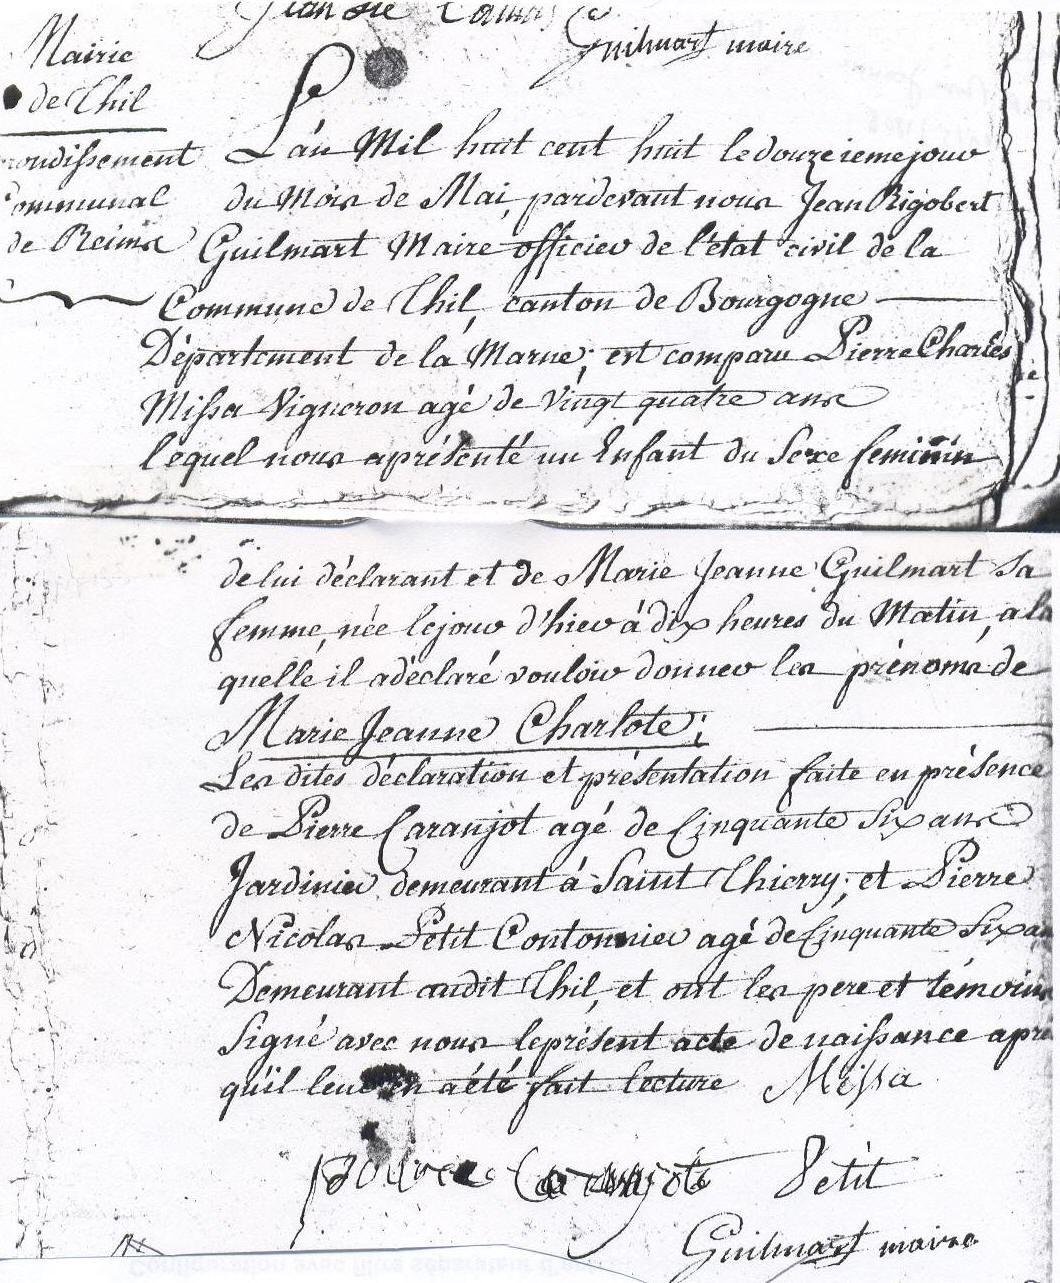 Guilmart maire
Mairie
de Thil
rondissement
Communal
de Reims
L'an Mil huit cent huit le douzieme jour
du Mois de Mai, pardevant nous Jean Rigobert
Guilmart Maire officier de l'état civil de la
Commune de Thil, canton de Bourgogne
Département de la Marne; est comparu Pierre Charles
Missa Vigneron agé de vingt quatre ans
lequel nous a présenté un Enfant du Sexe feminin
de lui déclarant et de Marie Jeanne Guilmart sa
femme, née le jour d'hier à dix heures du Matin, a la
quelle il a déclaré vouloir donner les prénoms de
Marie Jeanne Charlote;
Les dites déclaration et présentation faite en présence
de Pierre Caranjot agé de Cinquante Six ans
Jardinier demeurant à Saint Thierry; et Pierre
Nicolas Petit Contonnier agé de Cinquante Six an
Demeurant audit Thil, et ont les pere et témoins
Signé avec nous le présent acte de naissance apre
qu'il leur en a été fait lecture Missa
Petit
Guilmart maire